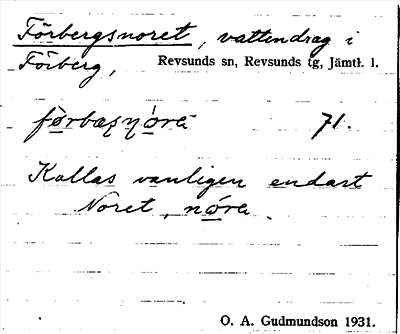 Förbergsnoret, vattendrag i
Förberg, Revsunds sn, Revsunds tg, Jämtl. l.
71.
Kallas vanligen endast
Noret, nǫ́ra.
O. A. Gudmundson 1931.